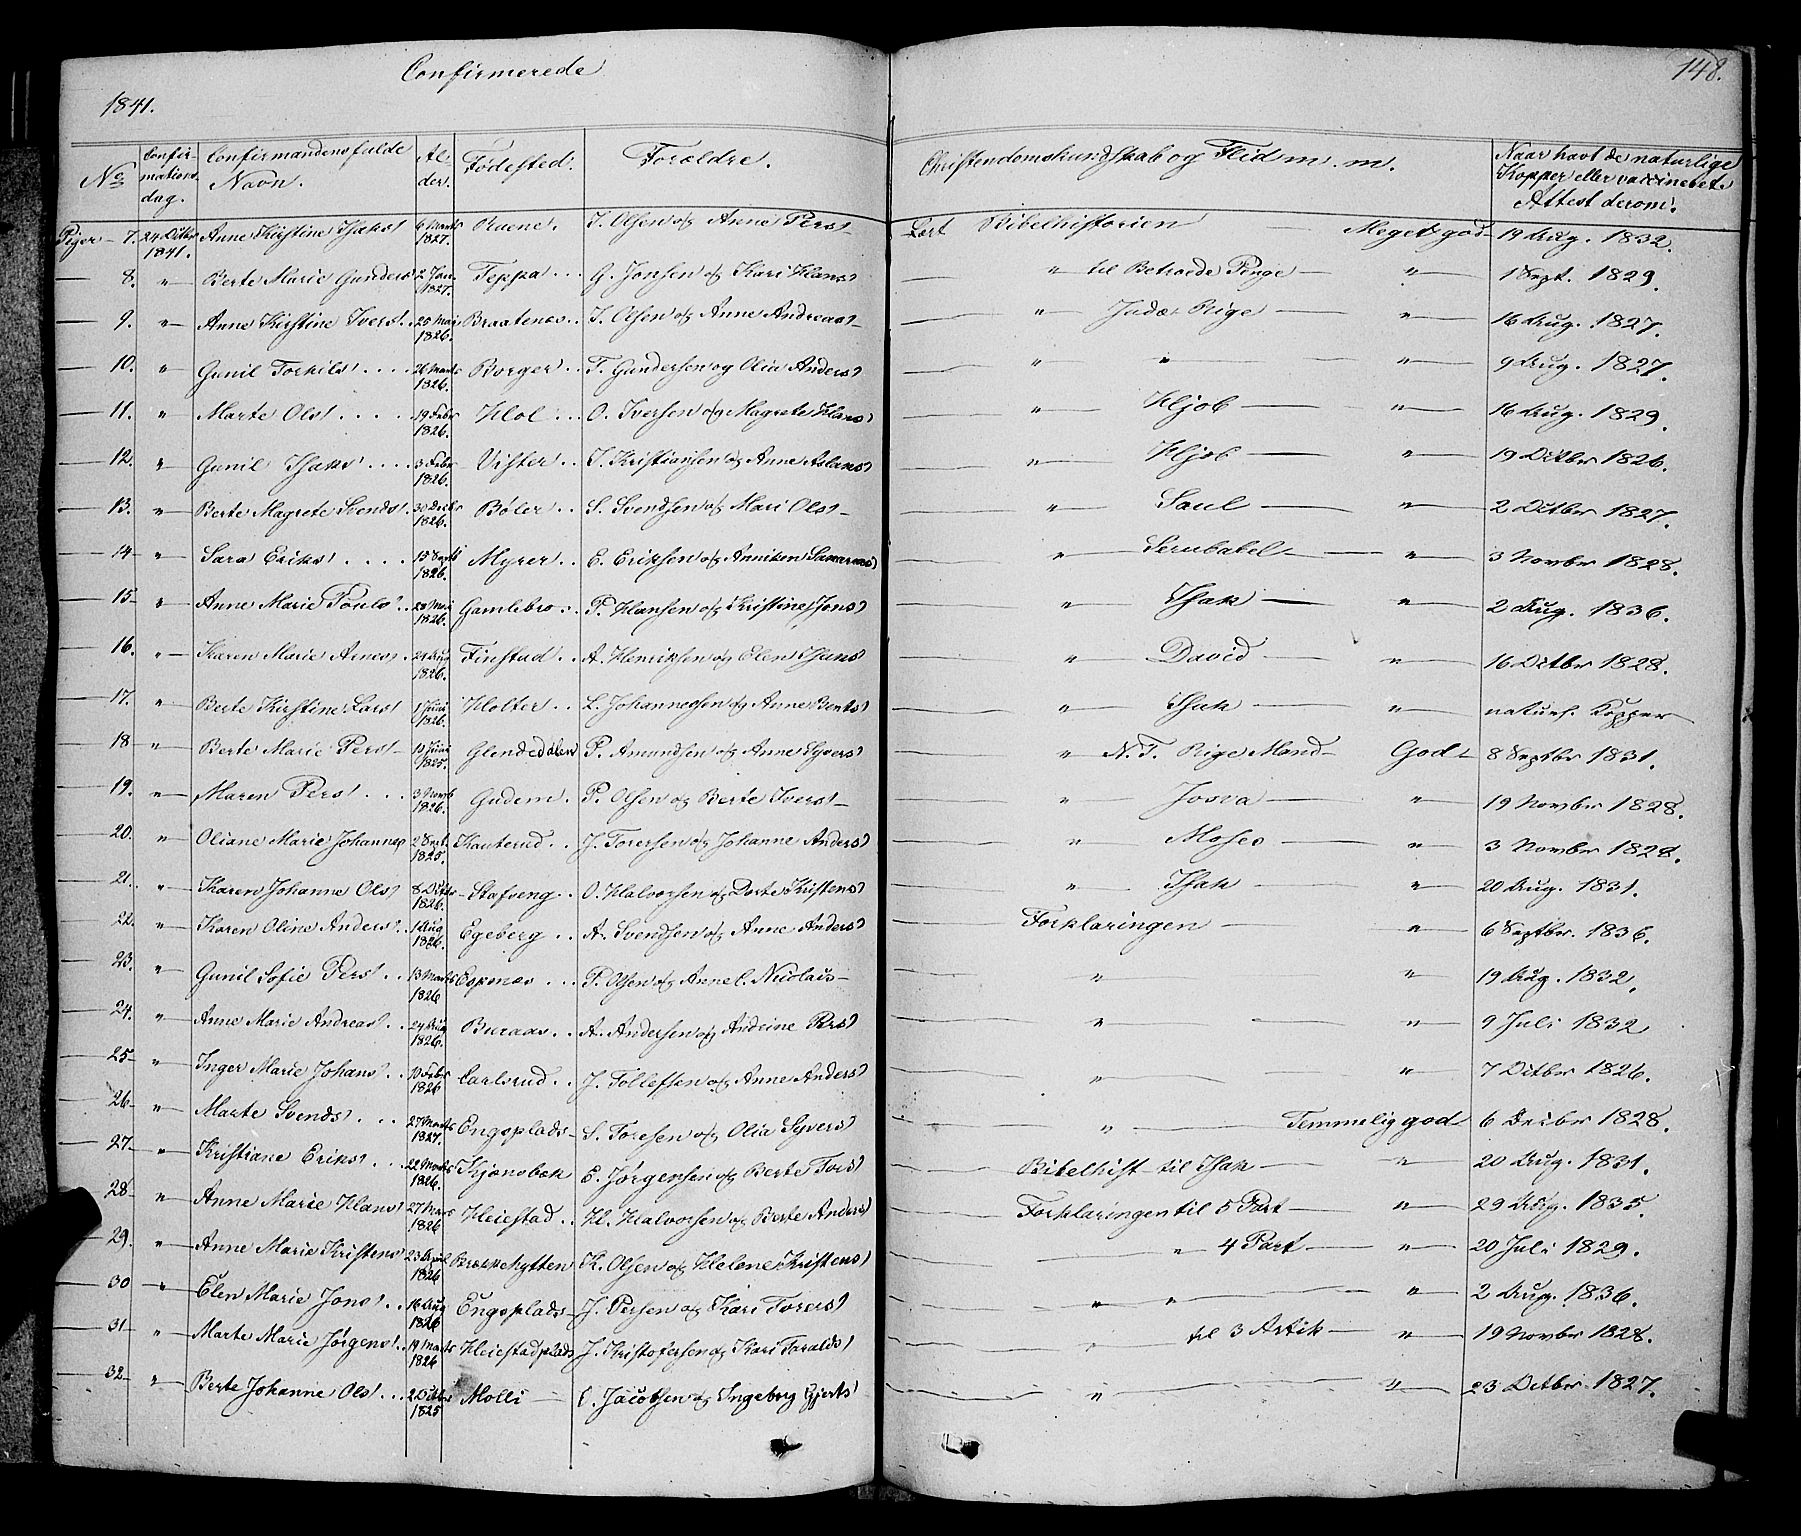 Confirmerede
148.
1841.
No Confirmations dag. Confirmandens fulde Navn. Alder. Fødested. Forældre. Christendomskundskab og Flid m. m. Naar havt de naturlige Kopper eller vaccineret. Attest derom.
Piger 7. 24 Octbr 1841. Anne Kirstine Isaks 6 Marts 1827. Ruene. I. Olsen og Anne Pers Lært Bibelhistorien Meget god 19 Aug. 1832.
8. " Berte Marie Gunders 2 Jan. 1827. Teppa G. Jonsen og Kari Hans " til Betroede Penge " 1 Sept. 1829.
9. " Anne Kirstine Ivers 25 Mai 1826. Braatenes I. Olsen og Anne Andreas " Judæ Rige " 16 Aug. 1827.
10. " Gunil Torkils 26 Marts 1826. Borger T. Gundersen og Olia Anders " " " 9 Aug. 1827.
11. " Marte Ols 19 Febr 1826. Hol O. Iversen og Magrete Hans " Hjob " 16 Aug. 1829.
12. " Gunil Isaks 3 Febr 1826. Vister I. Kristiansen og Anne Aslans " Hjob " 19 Octbr 1826.
13. " Berte Magrete Svends 30 Decbr 1826. Bøler S. Svendsen og Mari Ols " Saul " 2 Octbr 1827.
14 " Sara Eriks 15 1826. Myrer E. Eriksen og Anniken " Serubabel " 3 Novbr 1828.
15 " Anne Marie Pouls 1826. Gamlebro P. Hansen og Kristine Jons " Isak " 2 Aug. 1836.
16. " Karen Marie Arnes 24 Aug 1826. Finstad A. Henriksen og Elen Isaks " David " 16 Octbr 1828.
17. " Berte Kirstine Lars 1 1826. Holter L. Johannessen og Anne Bents " Isak " naturl. Kopper
18 " Berte Marie Pers 1825. Glende P. Amundsen og Anne Syvers " N. T. Rige Mand God 8 Septbr 1831.
19. " Maren Pers 3 Novb 1826. Gudem P. Olsen og Berte Ivers " Josva " 19 Novbr 1828.
20. " Oliane Marie Johannes 2 Sept. 1825. Kauterud J. Torersen og Johanne Anders " Moses " 3 Novbr 1828.
21. " Karen Johanne Ols 8 Octbr 1826. Stafseng O. Halvorsen og Dorte Kristens " Isak " 20 Aug. 1831.
22. " Karen Oline Anders 1 Aug 1826. Egeberg A. Svendsen og Anne Anders Forklaringen " 6 Septbr. 1836.
23. " Gunil Sofie Pers 13 Marts 1826 Espenes P. Olsen og Anne C. Nicolais " " 19 Aug. 1832.
24. " Anne Marie Andreas 24 Aug 1826. Buraas A. Andersen og Andrine Pers " " 9 Juli 1832
25 " Inger Marie Johans 10 Febr 1826 Carlsrud J. Tollefsen og Anne Anders " " 7 Octbr 1826.
26 " Marte Svends 27 Marts 1827. Engsplads S. Toresen og Olia Syvers " Temmelig god 6 Decbr 1828.
27 " Kristiane Eriks 22 Marts 1826. Kjønsbek E. Jørgensen og Berte Tors Bibelhist til Isak " 20 Aug. 1831.
28 " Anne Marie Hans 27 Marts 1826 Heiestad H. Halvorsen og Berte Anders Forklaringen til 5 Part " 29 Aug. 1835.
29. " Anne Marie Kristens 23 April 1826 Brækkehytten K. Olsen og Helene Kristens " 4 Part " 20 Juli 1829.
30 " Elen Marie Jons 16 Aug 1826 Engsplads J. Persen og Kari Torers " " " 2 Aug. 1836.
31 " Marte Marie Jørgens 19 Marts 1826 Heiestadplads J. Kristofersen og Kari Taralds " til 3 Artik " 19 Novbr 1828.
32 " Berte Johanne Ols 2 Octbr 1825 Molli O. Jacobsen og Ingeborg Gjerts " " 23 Octbr 1827.